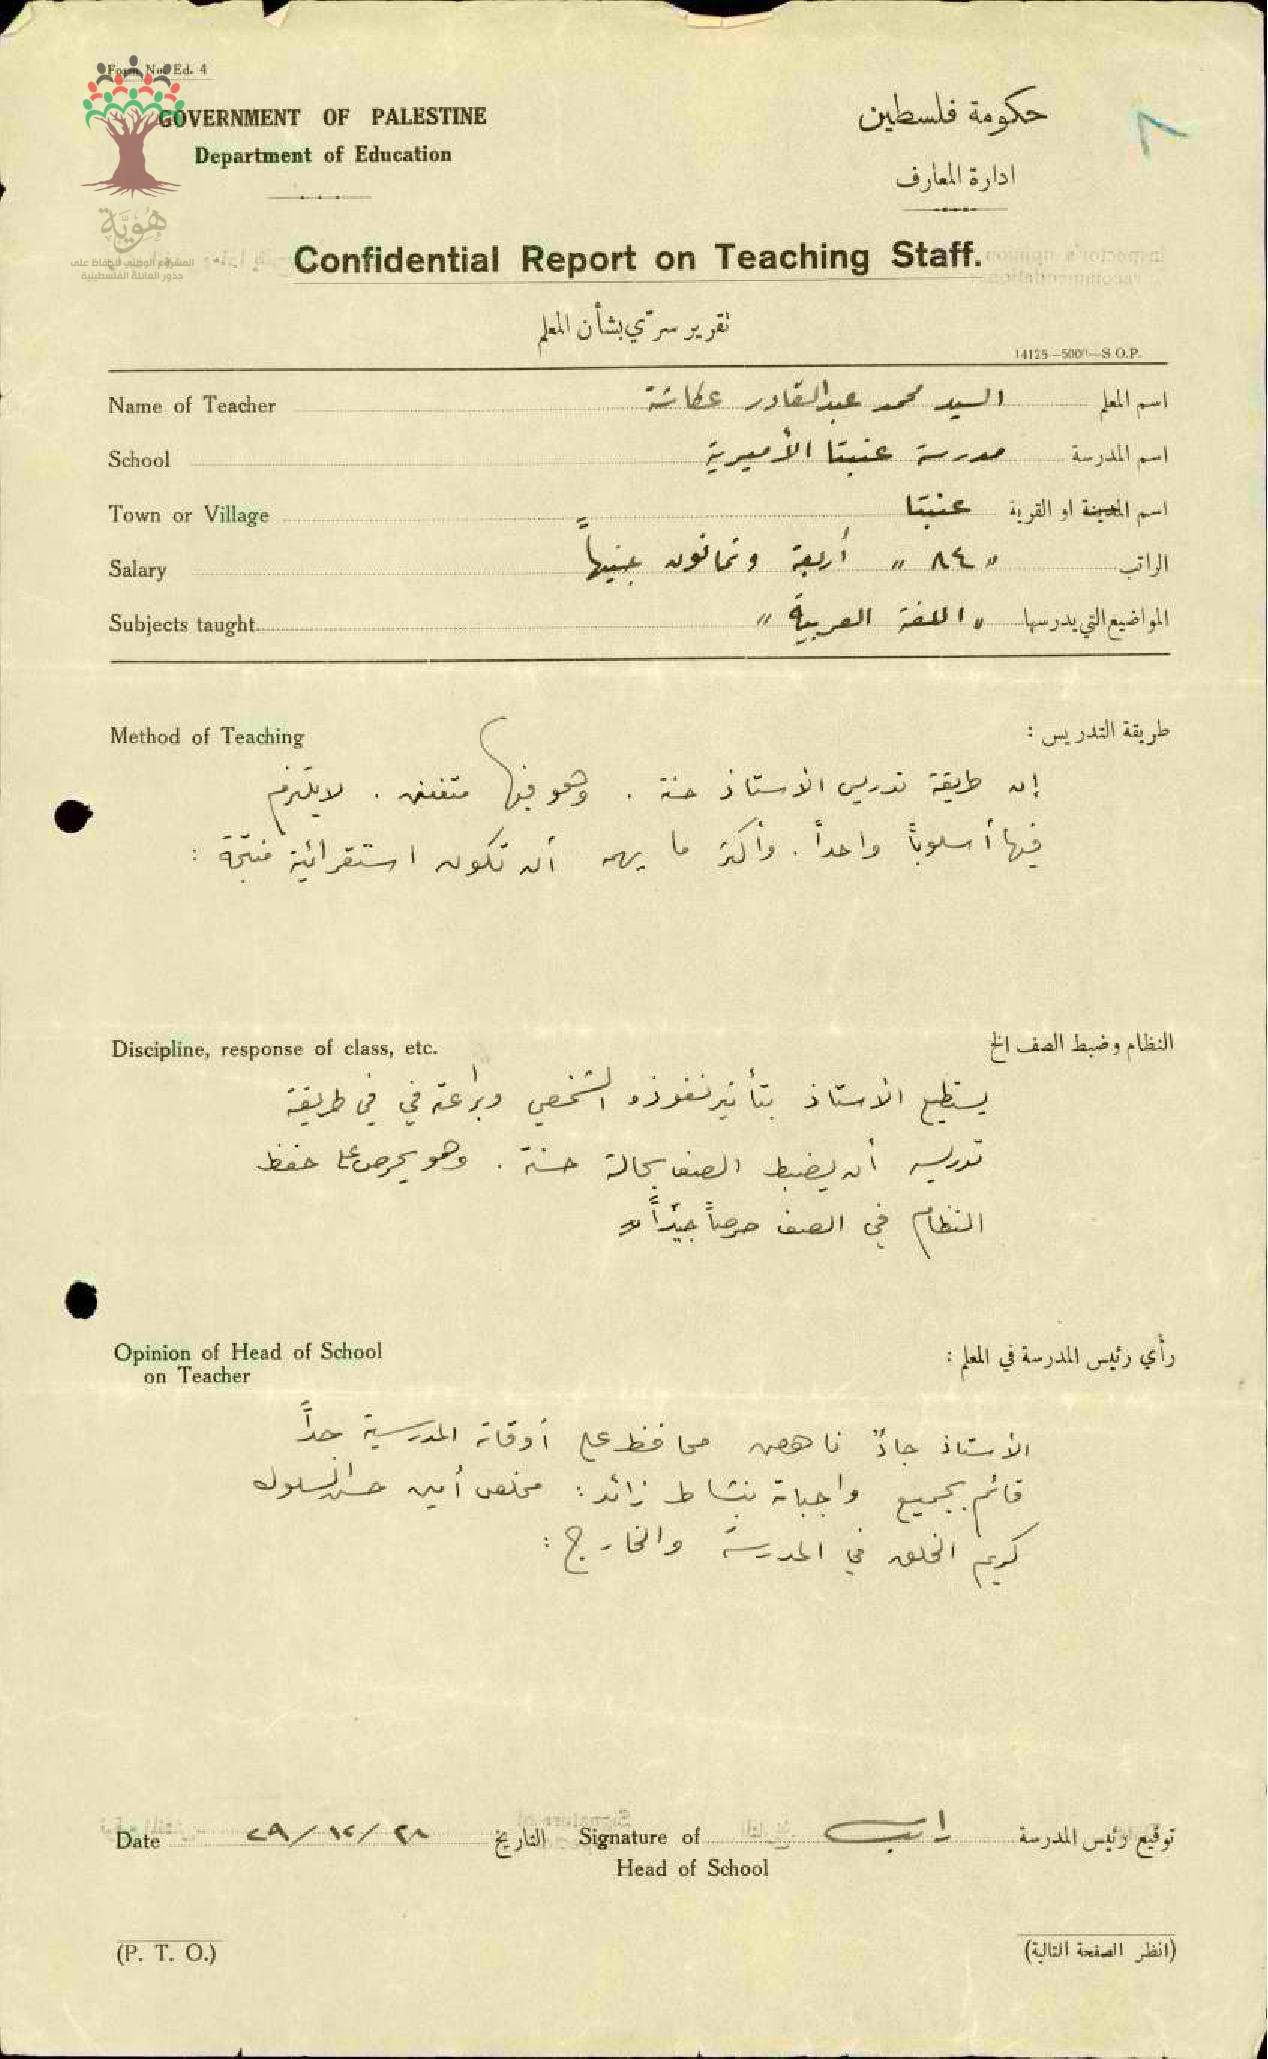 Form No. Ed. 4
GOVERNMENT OF PALESTINE
Department of Education
حكومة فلسطين
ادارة المعارف
هُوِيَّة
المشروع الوطني للحفاظ على
جذور العائلة الفلسطينية
Confidential Report on Teaching Staff.
تقرير سرّي بشأن المعلم
14125—5000—S.O.P.
Name of Teacher السيد محمد عبدالقادر عكاشة اسم المعلم
School مدرسة عنبتا الأميرية اسم المدرسة
Town or Village عنبتا اسم المدينة او القرية
Salary "٨٤" أربعة وثمانون جنيهاً الراتب
Subjects taught "اللغة العربية" المواضيع التي يدرسها
Method of Teaching طريقة التدريس :
إن طريقة تدريس الأستاذ حسنة . وهو فيها متفنن . لا يلتزم
فيها أسلوباً واحداً . وأكثر ما يهمه أن تكون استقرائية منتجة :
Discipline, response of class, etc. النظام وضبط الصف الخ
يستطيع الأستاذ بتأثير نفوذه الشخصي وبراعته في في طريقة
تدريسه أن يضبط الصف بحالة حسنة . وهو يحرص على حفظ
النظام في الصف حرصاً جيّداً
Opinion of Head of School رأي رئيس المدرسة في المعلم :
on Teacher
الأستاذ جادّ ناهض محافظ على أوقاته المدرسية جداً
قائم بجميع واجباته بنشاط زائد : مخلص أمين حسن السلوك
كريم الخلق في المدرسة والخارج :
Date ٢٩/١٢/٢٨ التاريخ Signature of توقيع رئيس المدرسة
Head of School
(P. T. O.) (انظر الصفحة التالية)